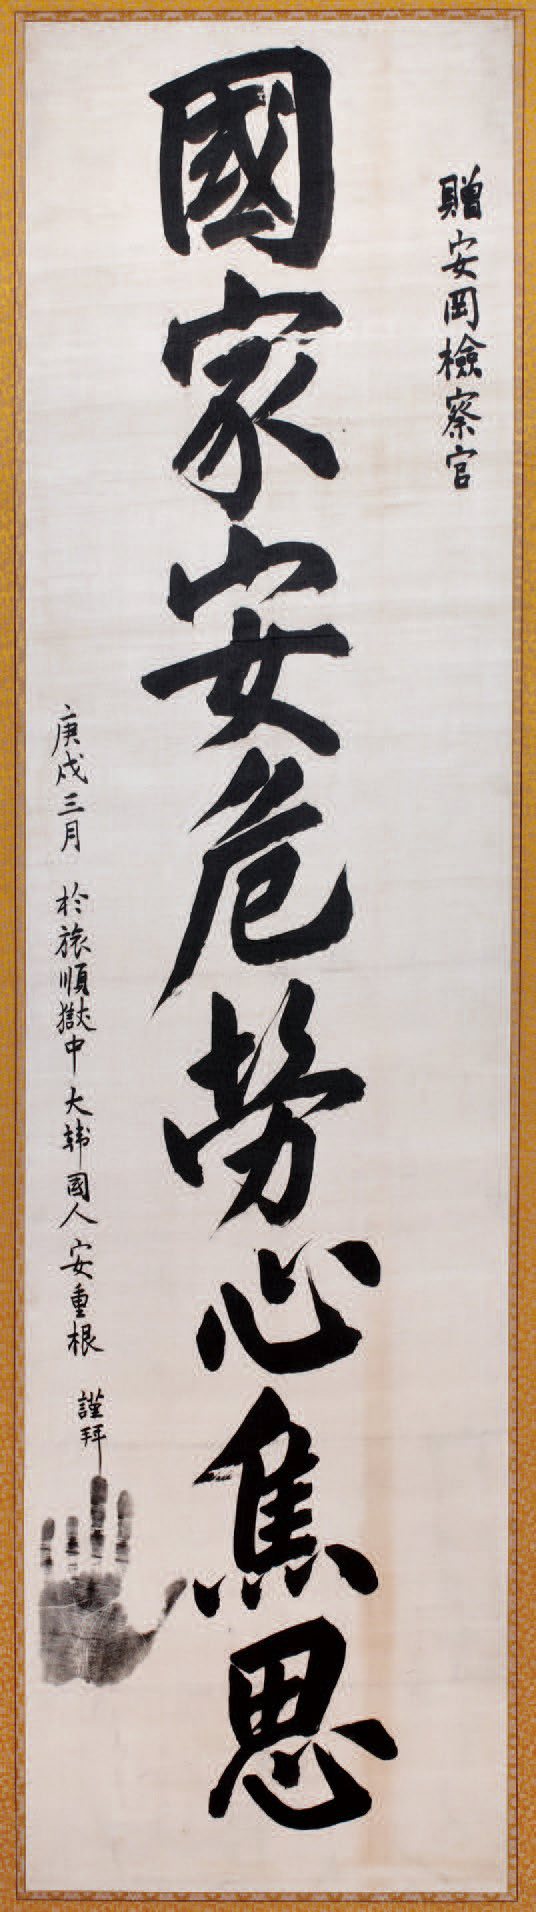 贈安岡檢察官
國家安危勞心焦思
庚戌三月 於旅順獄中 大韓國人安重根 謹拜